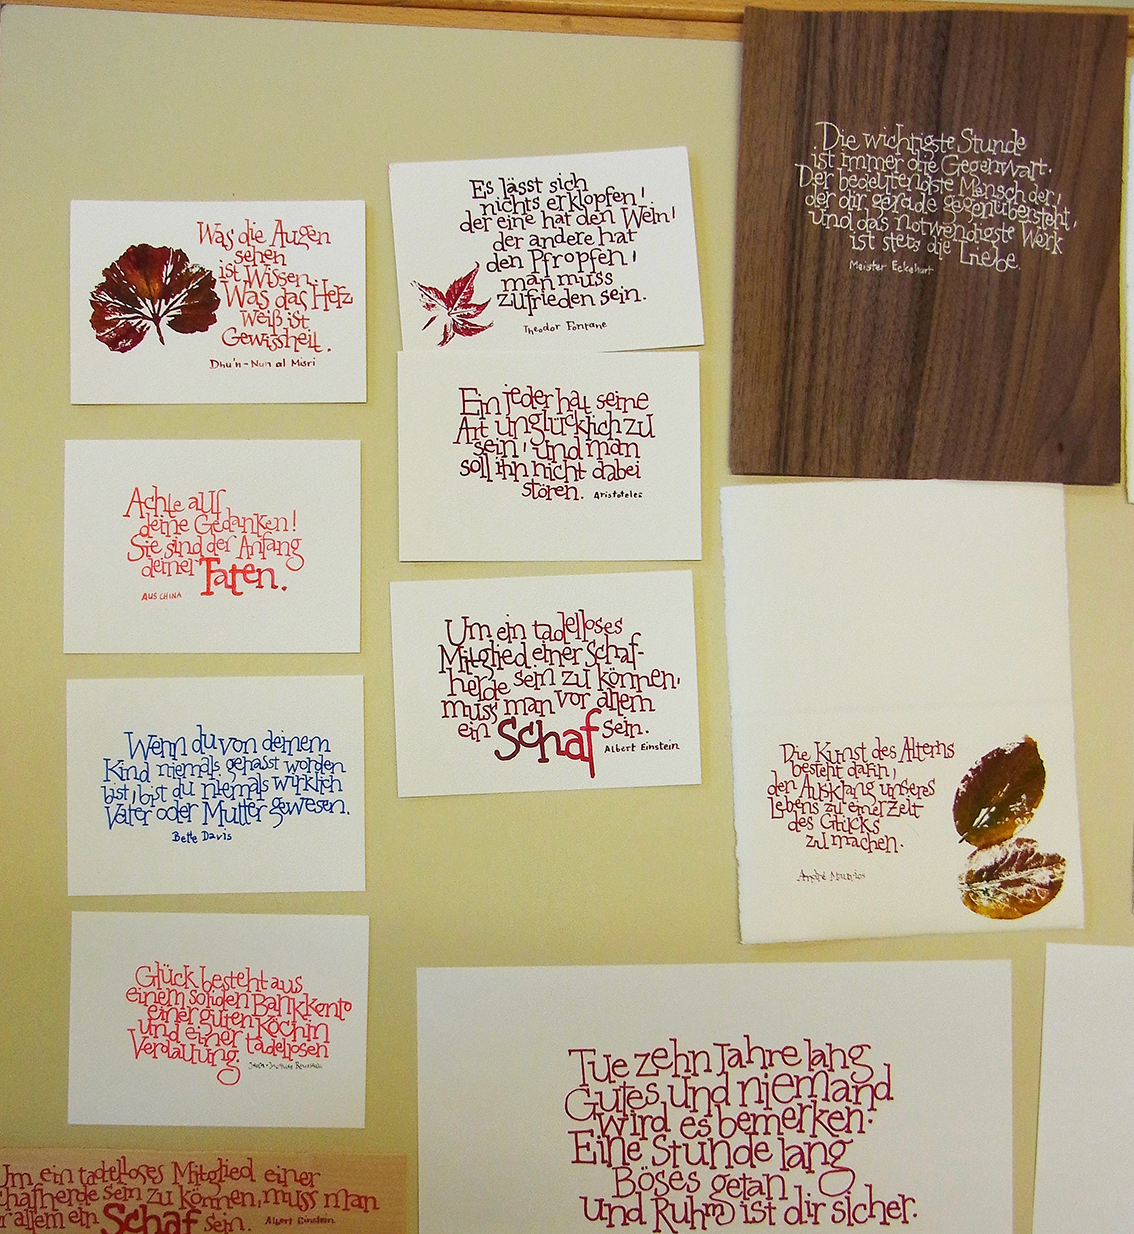 Was die Augen
sehen
ist Wissen.
Was das Herz
weiß ist
Gewissheit.
Dhu'n-Nun al Misri
Achte auf
deine Gedanken!
Sie sind der Anfang
deiner Taten.
AUS CHINA
Wenn du von deinem
Kind niemals gehasst worden
bist, bist du niemals wirklich
Vater oder Mutter gewesen.
Bette Davis
Glück besteht aus
einem soliden Bankkonto
einer guten Köchin
und einer tadellosen
Verdauung.
Um ein tadelloses Mitglied einer
chafherde sein zu können, muss man
r allem ein Schaf sein. Albert Einstein
Es lässt sich
nichts erklopfen,
der eine hat den Wein,
der andere hat
den Pfropfen,
man muss
zufrieden sein.
Theodor Fontane
Ein jeder hat seine
Art unglücklich zu
sein, und man
soll ihn nicht dabei
stören. Aristoteles
Um ein tadelloses
Mitglied einer Schaf-
herde sein zu können,
muss man vor allem
ein Schaf sein.
Albert Einstein
Die wichtigste Stunde
ist immer die Gegenwart.
Der bedeutendste Mensch der,
der dir gerade gegenübersteht,
und das notwendigste Werk
ist stets die Liebe.
Meister Eckehart
Die Kunst des Alterns
besteht darin,
den Ausklang unseres
Lebens zu einer Zeit
des Glücks
zu machen.
André
Tue zehn Jahre lang
Gutes und niemand
wird es bemerken.
Eine Stunde lang
Böses getan
und Ruhm ist dir sicher.